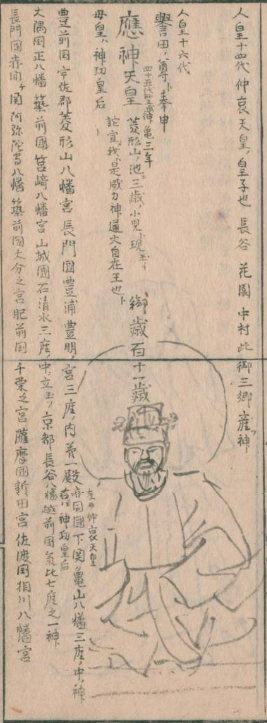 人皇十四代仲哀天皇ノ皇子也 長谷 花園 中村此御三郷産神
人皇十六代
譽田ノ尊ト奉申
應神天皇 御歳百十一歳
四十五代聖武神亀三年
菱形山ノ池ニ三歳ノ小児ト現玉フ
託宣我ハ是威力神通大自在王也ト
母皇ハ神功皇后
豊前國宇佐郡菱形山八幡宮 長門國豊浦豊明ノ宮三座ノ内第一殿
左ハ仲哀天皇
右ハ神功皇后
赤間関下関亀山八幡三座ノ中ノ神
大隅国正八幡 築前國筥崎八幡宮 山城國石清水三座ノ中立玉フ 京都長谷八幡 越前國氣比七座之一神
長門國赤間ヶ関阿弥陀寺八幡 築前国大分之宮 肥前国千栗之宮 薩摩國新田宮 佐渡国相川八幡宮